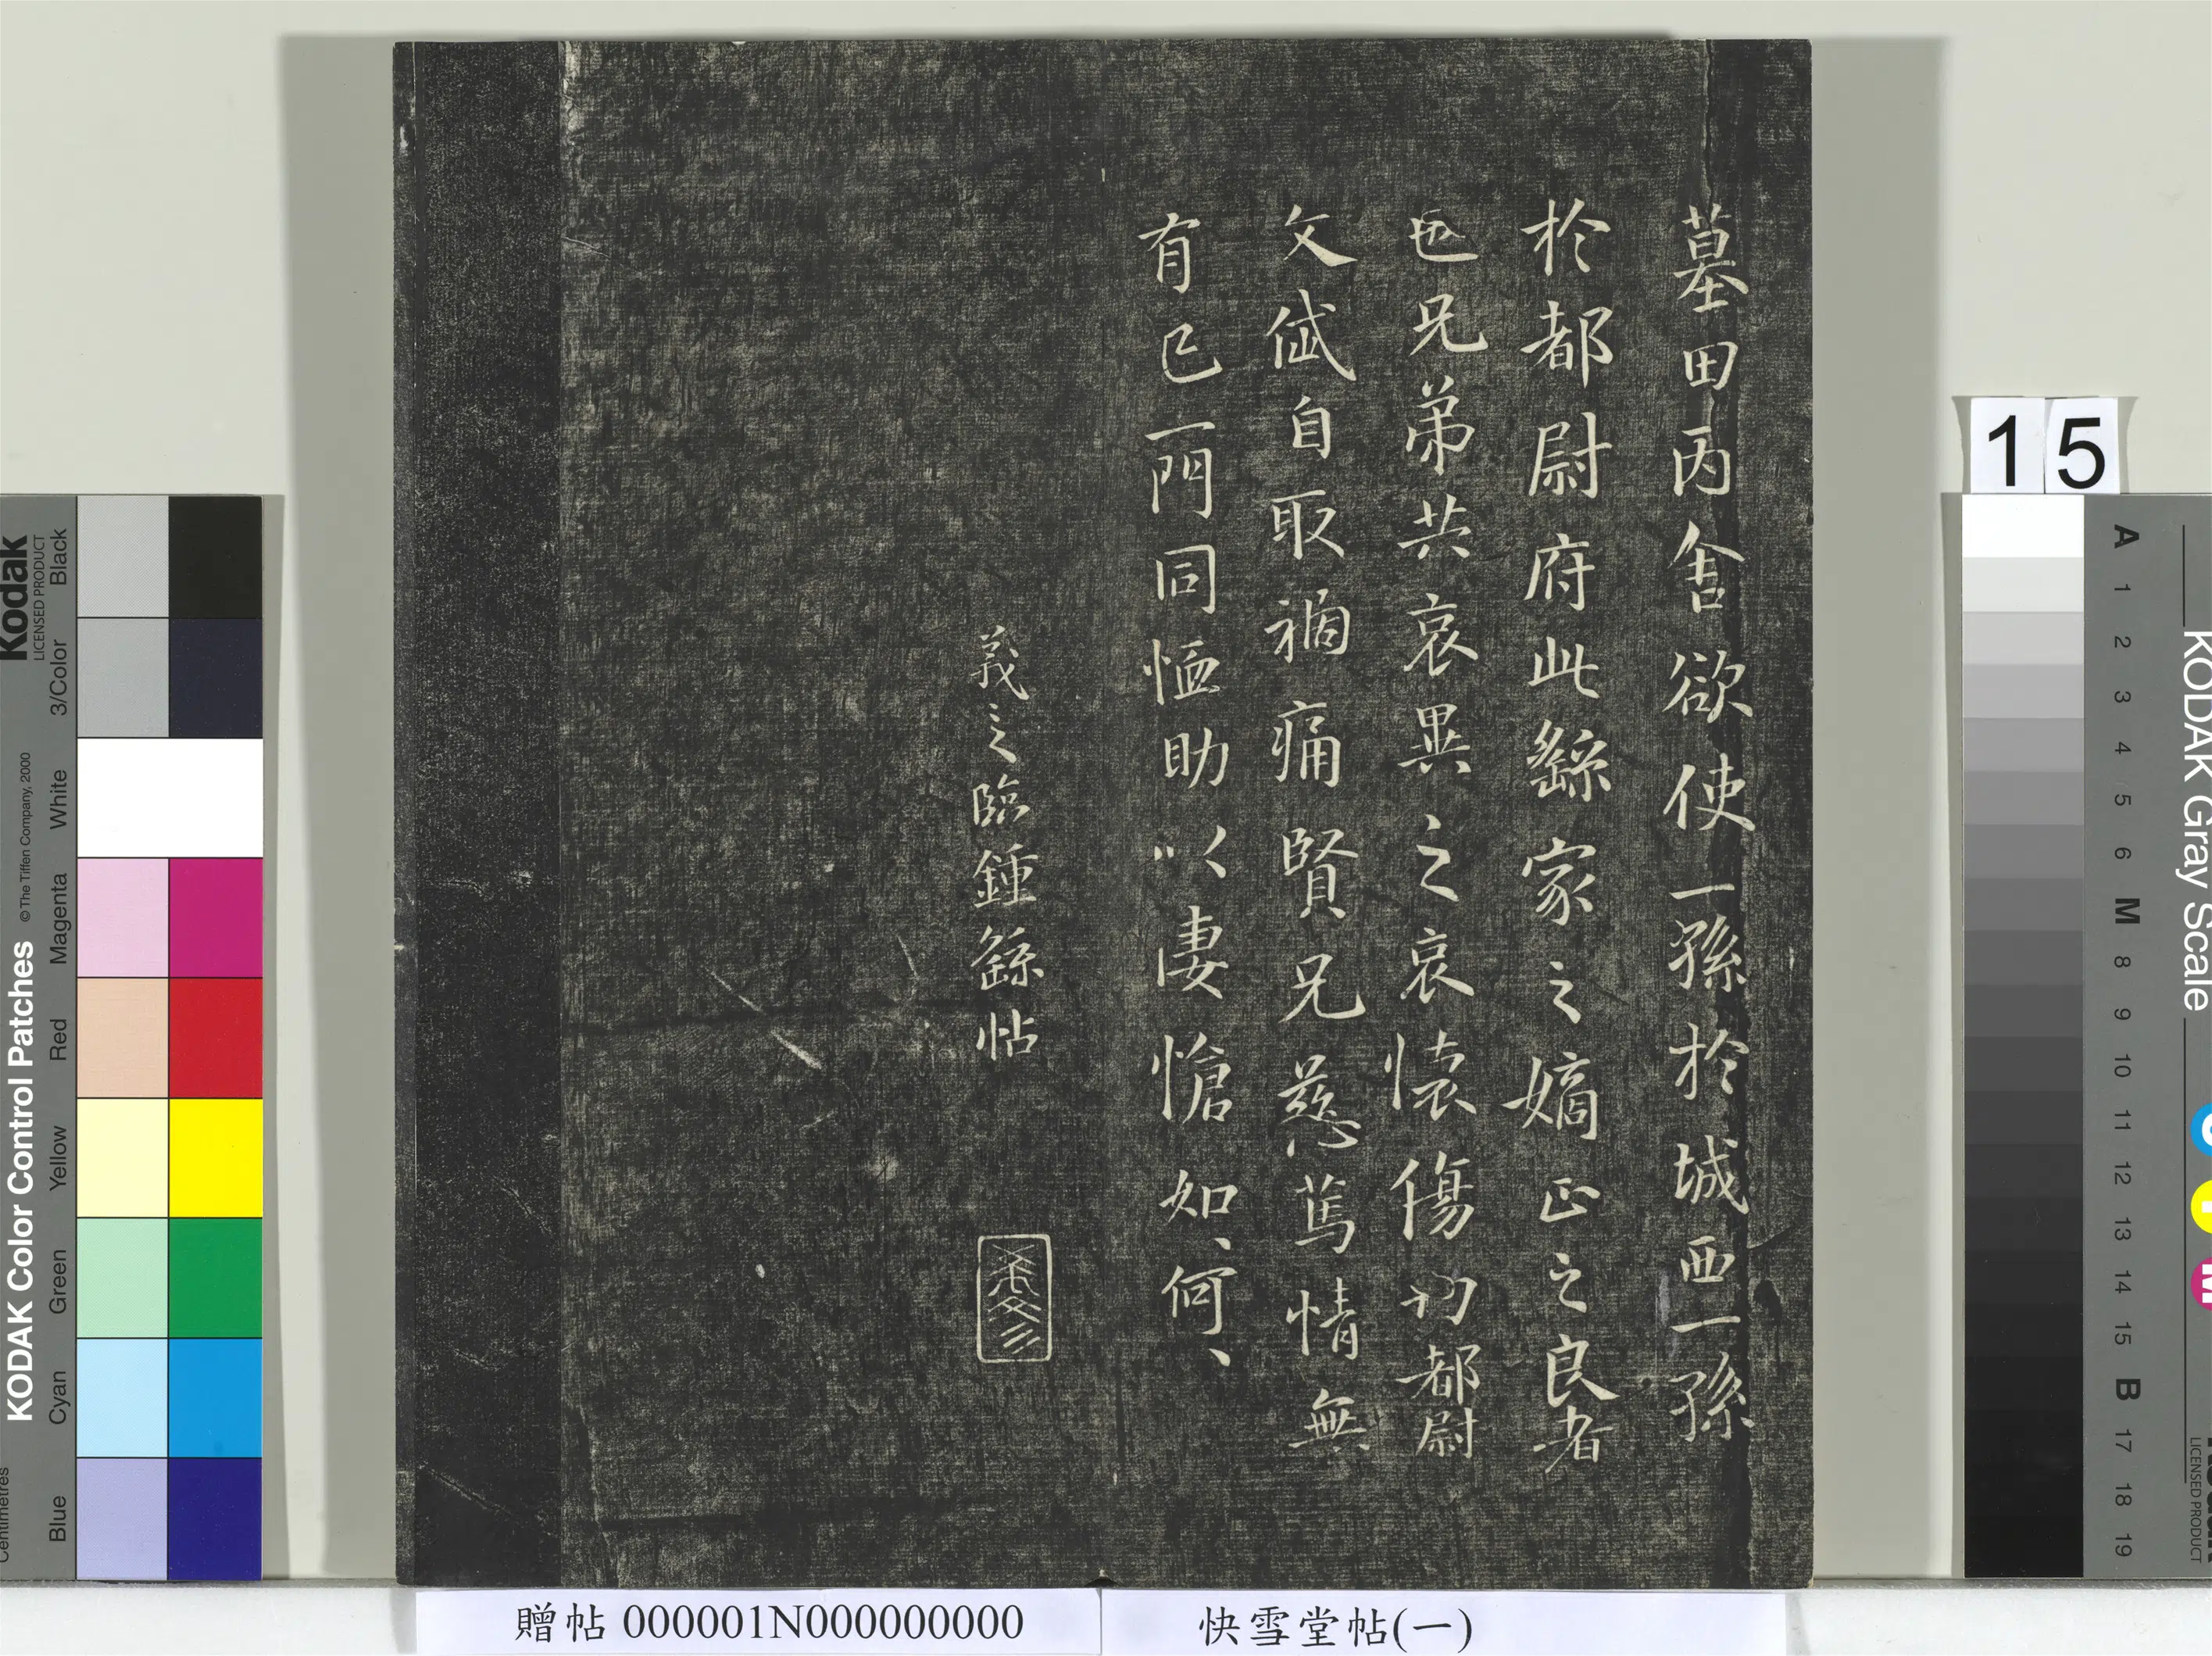 墓田丙舍欲使一孫於城西一孫
於都尉府此繇家之嫡正之良者
也兄弟共哀異之哀懷傷切都尉
文岱自取禍痛賢兄慈篤情無
有已一門同恤助以悽愴如何
羲之臨鍾繇帖
贈帖 000001N000000000
快雪堂帖(一)
15
Kodak
LICENSED PRODUCT
KODAK Color Control Patches
© The Tiffen Company, 2000
Black
3/Color
White
Magenta
Red
Yellow
Green
Cyan
Blue
Centimetres
KODAK Gray Scale
A 1 2 3 4 5 6 M 8 9 10 11 12 13 14 15 B 17 18 19
C
Y
M
LICENSED PRODUCT